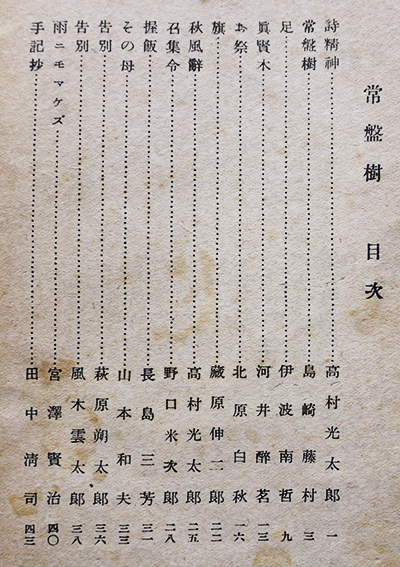 常盤樹 目次
詩精神……高村光太郎 一
常盤樹……島崎藤村 三
足……伊波南哲 九
眞賢木……河井醉茗 一三
お祭……北原白秋 一六
旗……藏原伸二郎 二二
秋風辭……高村光太郎 二五
召集令……野口米次郎 二八
握飯……長島三芳 三一
その母……山本和夫 三三
告別……萩原朔太郎 三六
告別……風木雲太郎 三八
雨ニモマケズ……宮澤賢治 四〇
手記抄……田中淸司 四三